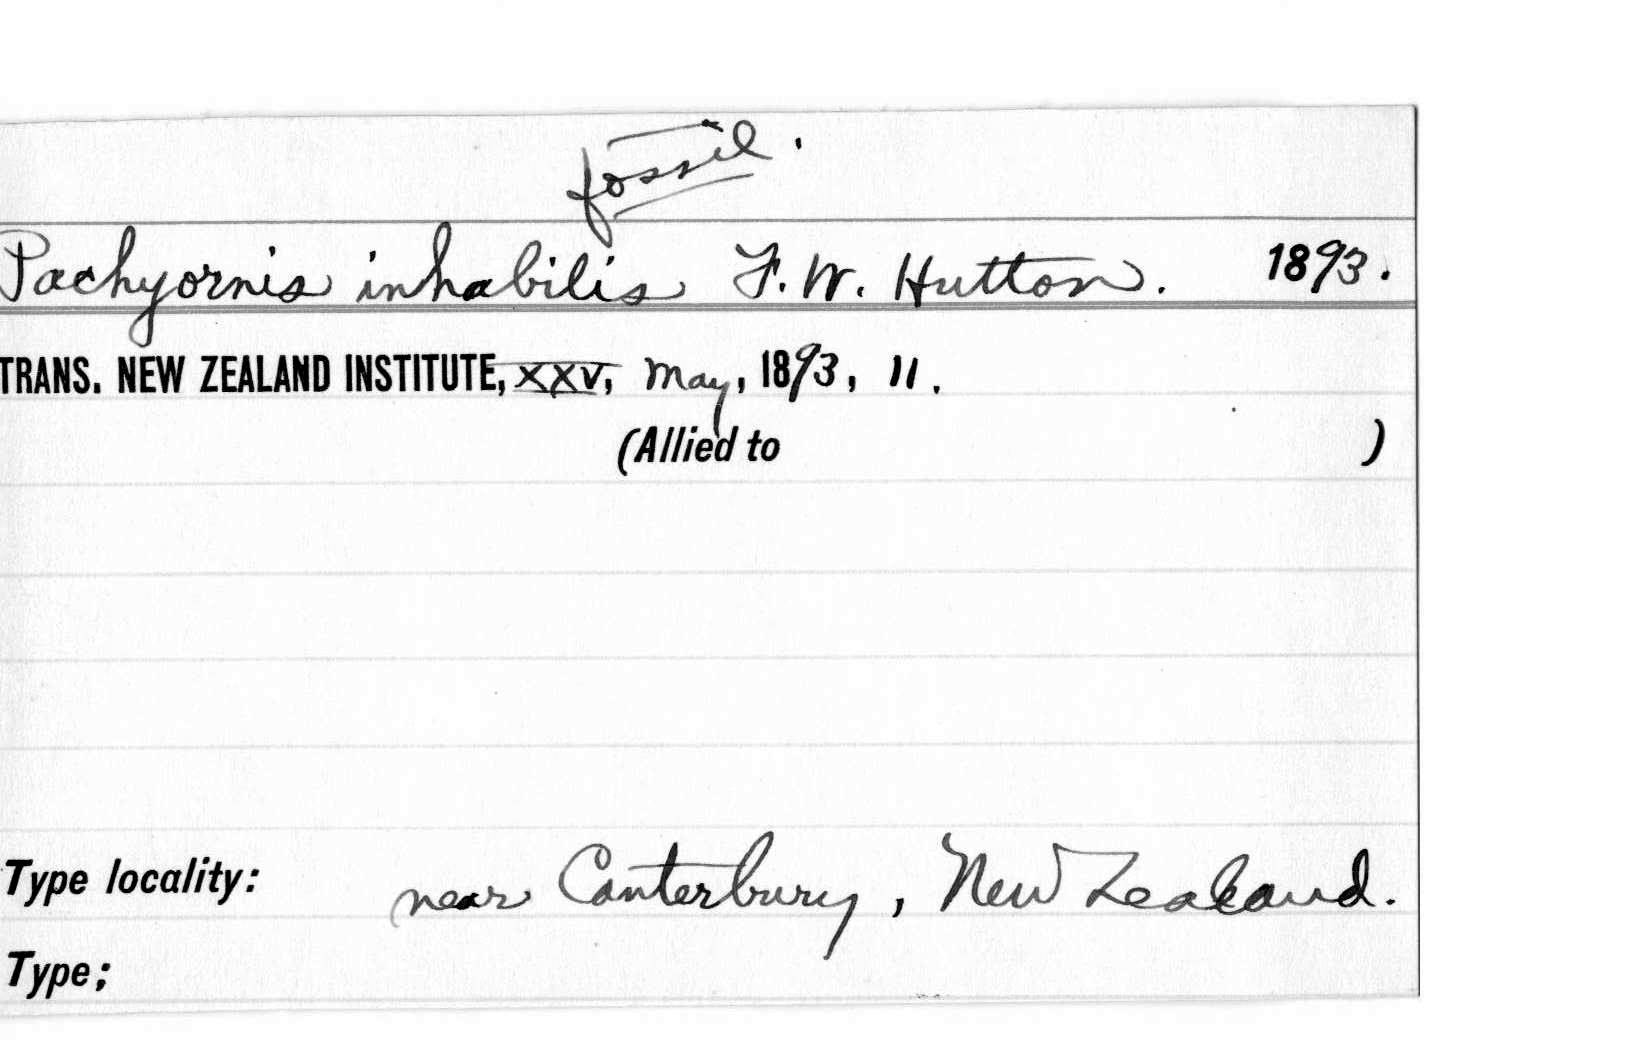 fossil.
Pachyornis inhabilis F. W. Hutton. 1893.
TRANS. NEW ZEALAND INSTITUTE, XXV, May, 1893, 11.
(Allied to )
Type locality: near Canterbury, New Zealand.
Type;